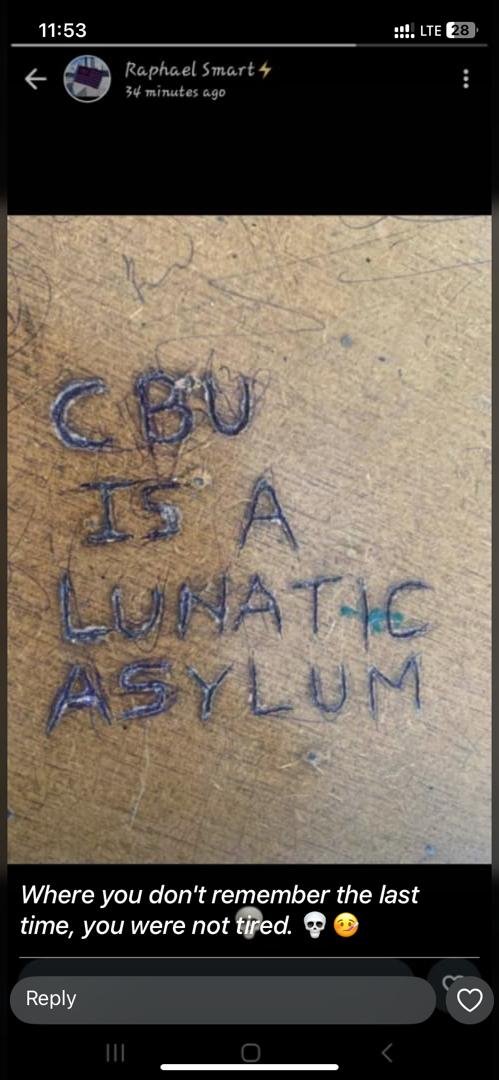 11:53
LTE 28
Raphael Smart⚡
34 minutes ago
CBU
IS A
LUNATIC
ASYLUM
Where you don't remember the last
time, you were not tired. 💀 🤒
Reply